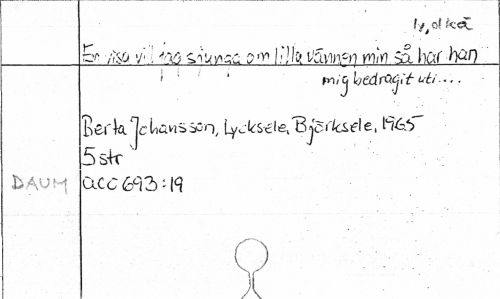 ly, olkä
En visa vill jag sjunga om lilla vännen min så har han
mig bedragit uti....
Berta Johansson, Lycksele, Björksele, 1965
5 str
DAUM acc 693:19